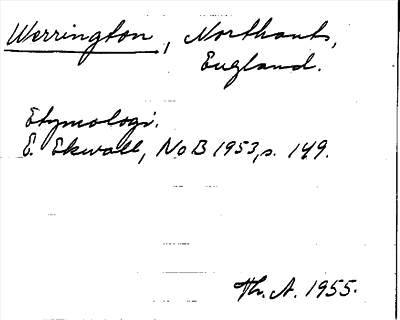 Werrington, Northants,
England.
Etymologi.
E. Ekwall, NoB 1953, s. 149.
Th. A. 1955.